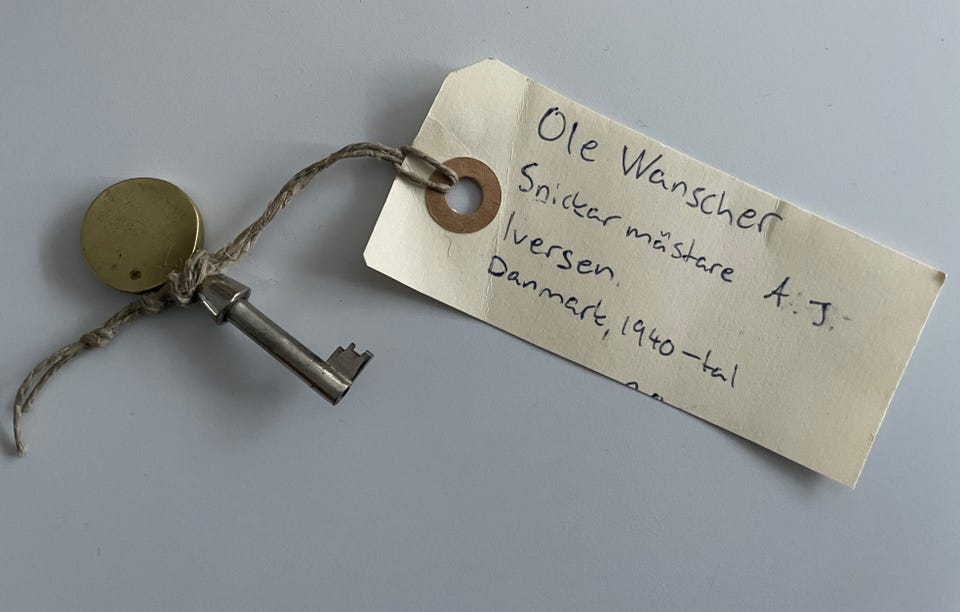 Ole Wanscher
Snickarmästare A. J.
Iversen.
Danmark, 1940-tal